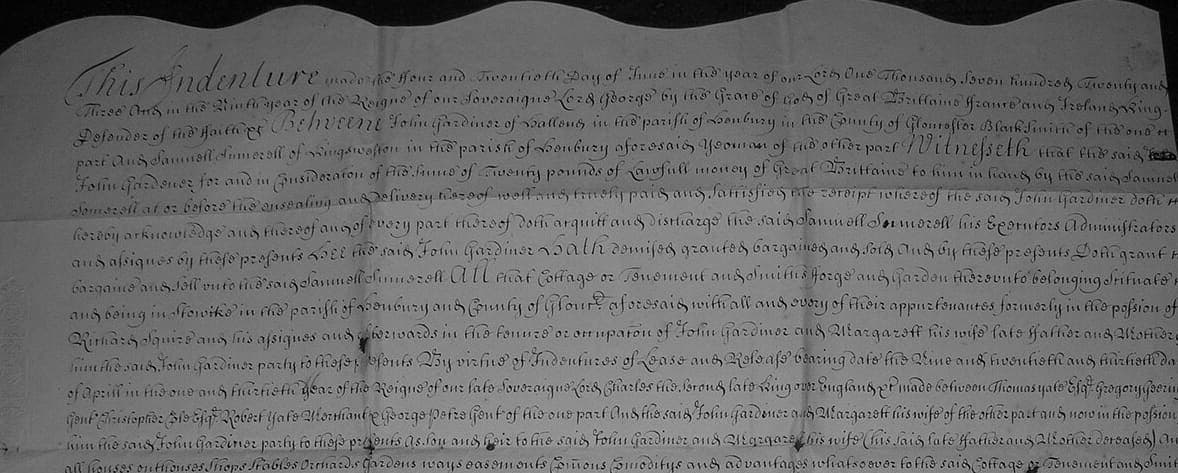 This Indenture made the ffour and Twentieth Day of June in the year of our Lord One Thousand Seven hundred Twenty and
Three And in the Ninth year of the Reigne of our Soveraigne Lord George by the Grace of God of Great Brittaine ffrance and Ireland King
Defender of the ffaith &c Betweene John Gardiner of Hallend in the parish of Henbury in the County of Gloucester BlackSmith of the one
part And Samuell Sumerell of Kingsweston in the parish of Henbury aforesaid Yeoman of the other part Witnesseth that the said
John Gardener for and in Consideraton of the Sume of Twenty pounds of Lawfull money of Great Brittaine to him in hand by the said Samuel
Somerell at or before the ensealing and Delivery hereof well and truely paid and Sattisfied the receipt whereof the said John Gardiner doth
hereby acknowledge and thereof and of every part thereof doth acquitt and discharge the said Samuell Sumerell his Executors Administrators
and assignes by these presents Hee the said John Gardiner Hath demised granted bargained and sold And by these presents Doth grant
bargaine and sell unto the said Samuell Sumerell All that Cottage or Tenement and Smiths fforge and Garden thereunto belonging Scituate
and being in Stowike in the parish of Henbury and County of Glouc aforesaid with all and every of their appurtenances formerly in the possion of
Richard Squire and his assignes and afterwards in the tenure or occupaton of John Gardiner and Margarett his wife late ffather and Mother
him the said John Gardiner party to these presents By virtue of Indentures of Lease and Release bearing date the Nine and twentieth and thirtieth da
of Aprill in the one and thirtieth year of the Reigne of our late Soveraigne Lord Charles the second late King over England &c made between Thomas yate Esqr Gregory
Gent Christopher Cole Esqr Robert Yate Merchant & George Petre Gent of the one part And the said John Gardiner and Margarett his wife of the other part and now in the possion
him the said John Gardiner party to these presents As son and heir to the said John Gardiner and Margarett his wife (his said late ffather and Mother deceased) An
all houses outhouses Shops Stables Orchards Gardens ways easements Comons Comoditys and advantages whatsoever to the said Cottage or Tenement and Smit